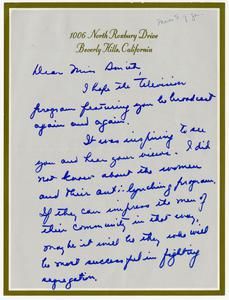 1006 North Roxbury Drive
Beverly Hills, California
Dear Miss Smith,
I hope the Television
program featuring you be broadcast
again and again.
It was inspiring to see
you and hear your views. I did
not know about the women
and their anti-lynching program.
If they can impress the men of
their community in that way,
maybe it will be they who will
be most successful in fighting
segregation.